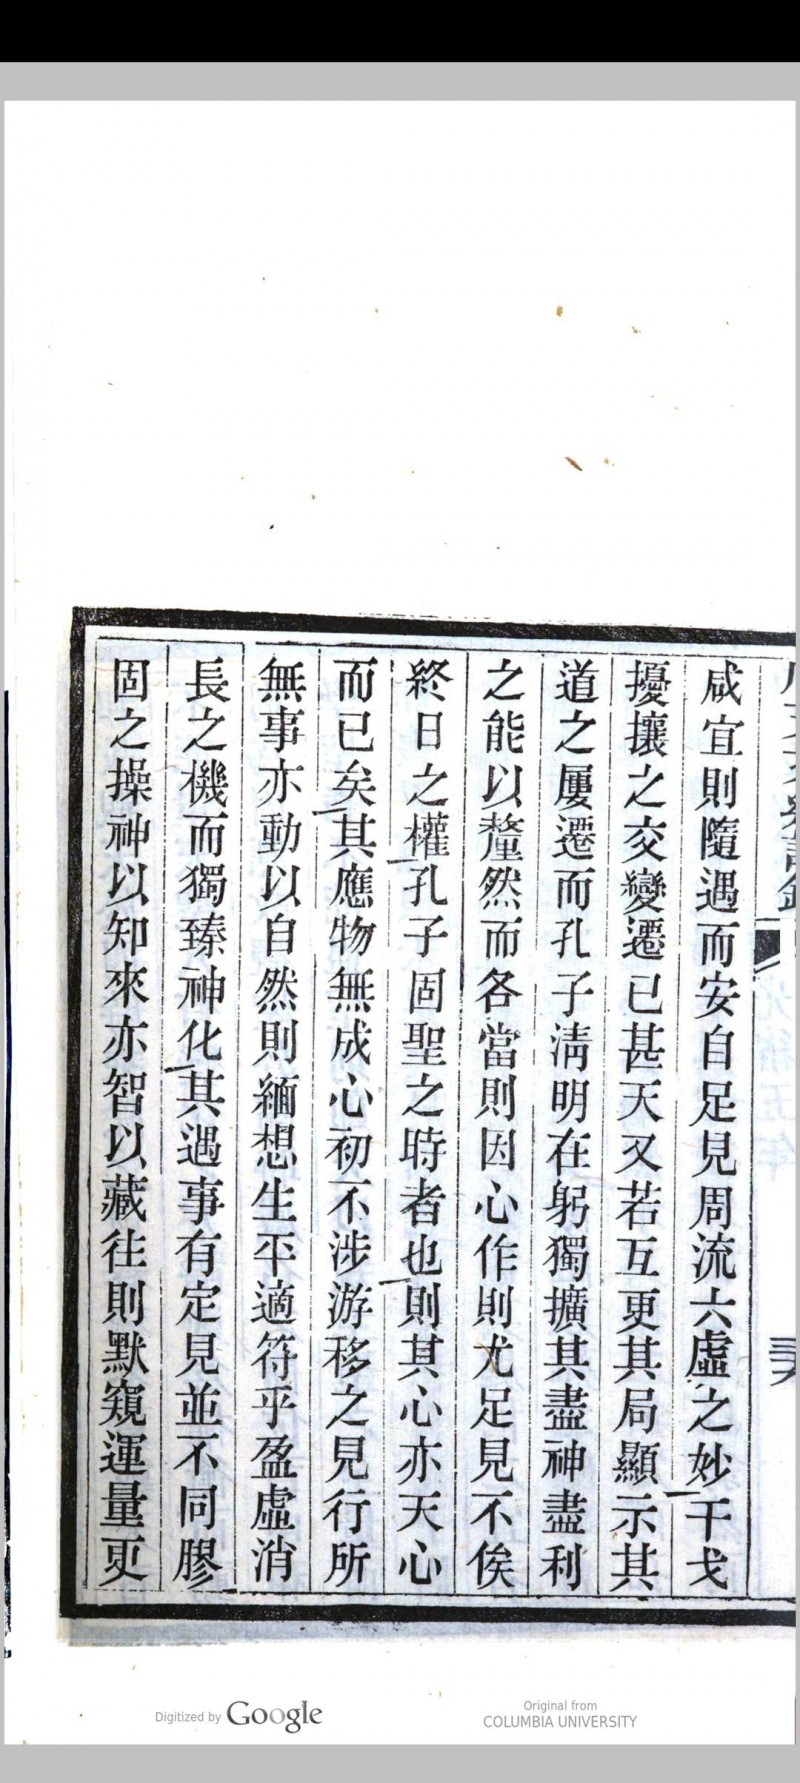 咸宜則隨遇而安自足見周流六虛之妙干戈
擾攘之交變遷已甚天又若互更其局顯示其
道之屢遷而孔子淸明在躬獨擴其盡神盡利
之能以釐然而各當則因心作則尤足見不俟
終日之權孔子固聖之時者也則其心亦天心
而已矣其應物無成心初不涉游移之見行所
無事亦動以自然則緬想生平適符乎盈虛消
長之機而獨臻神化其遇事有定見並不同膠
固之操神以知來亦智以藏往則默窺運量更
光緒五年
Digitized by Google
Original from
COLUMBIA UNIVERSITY